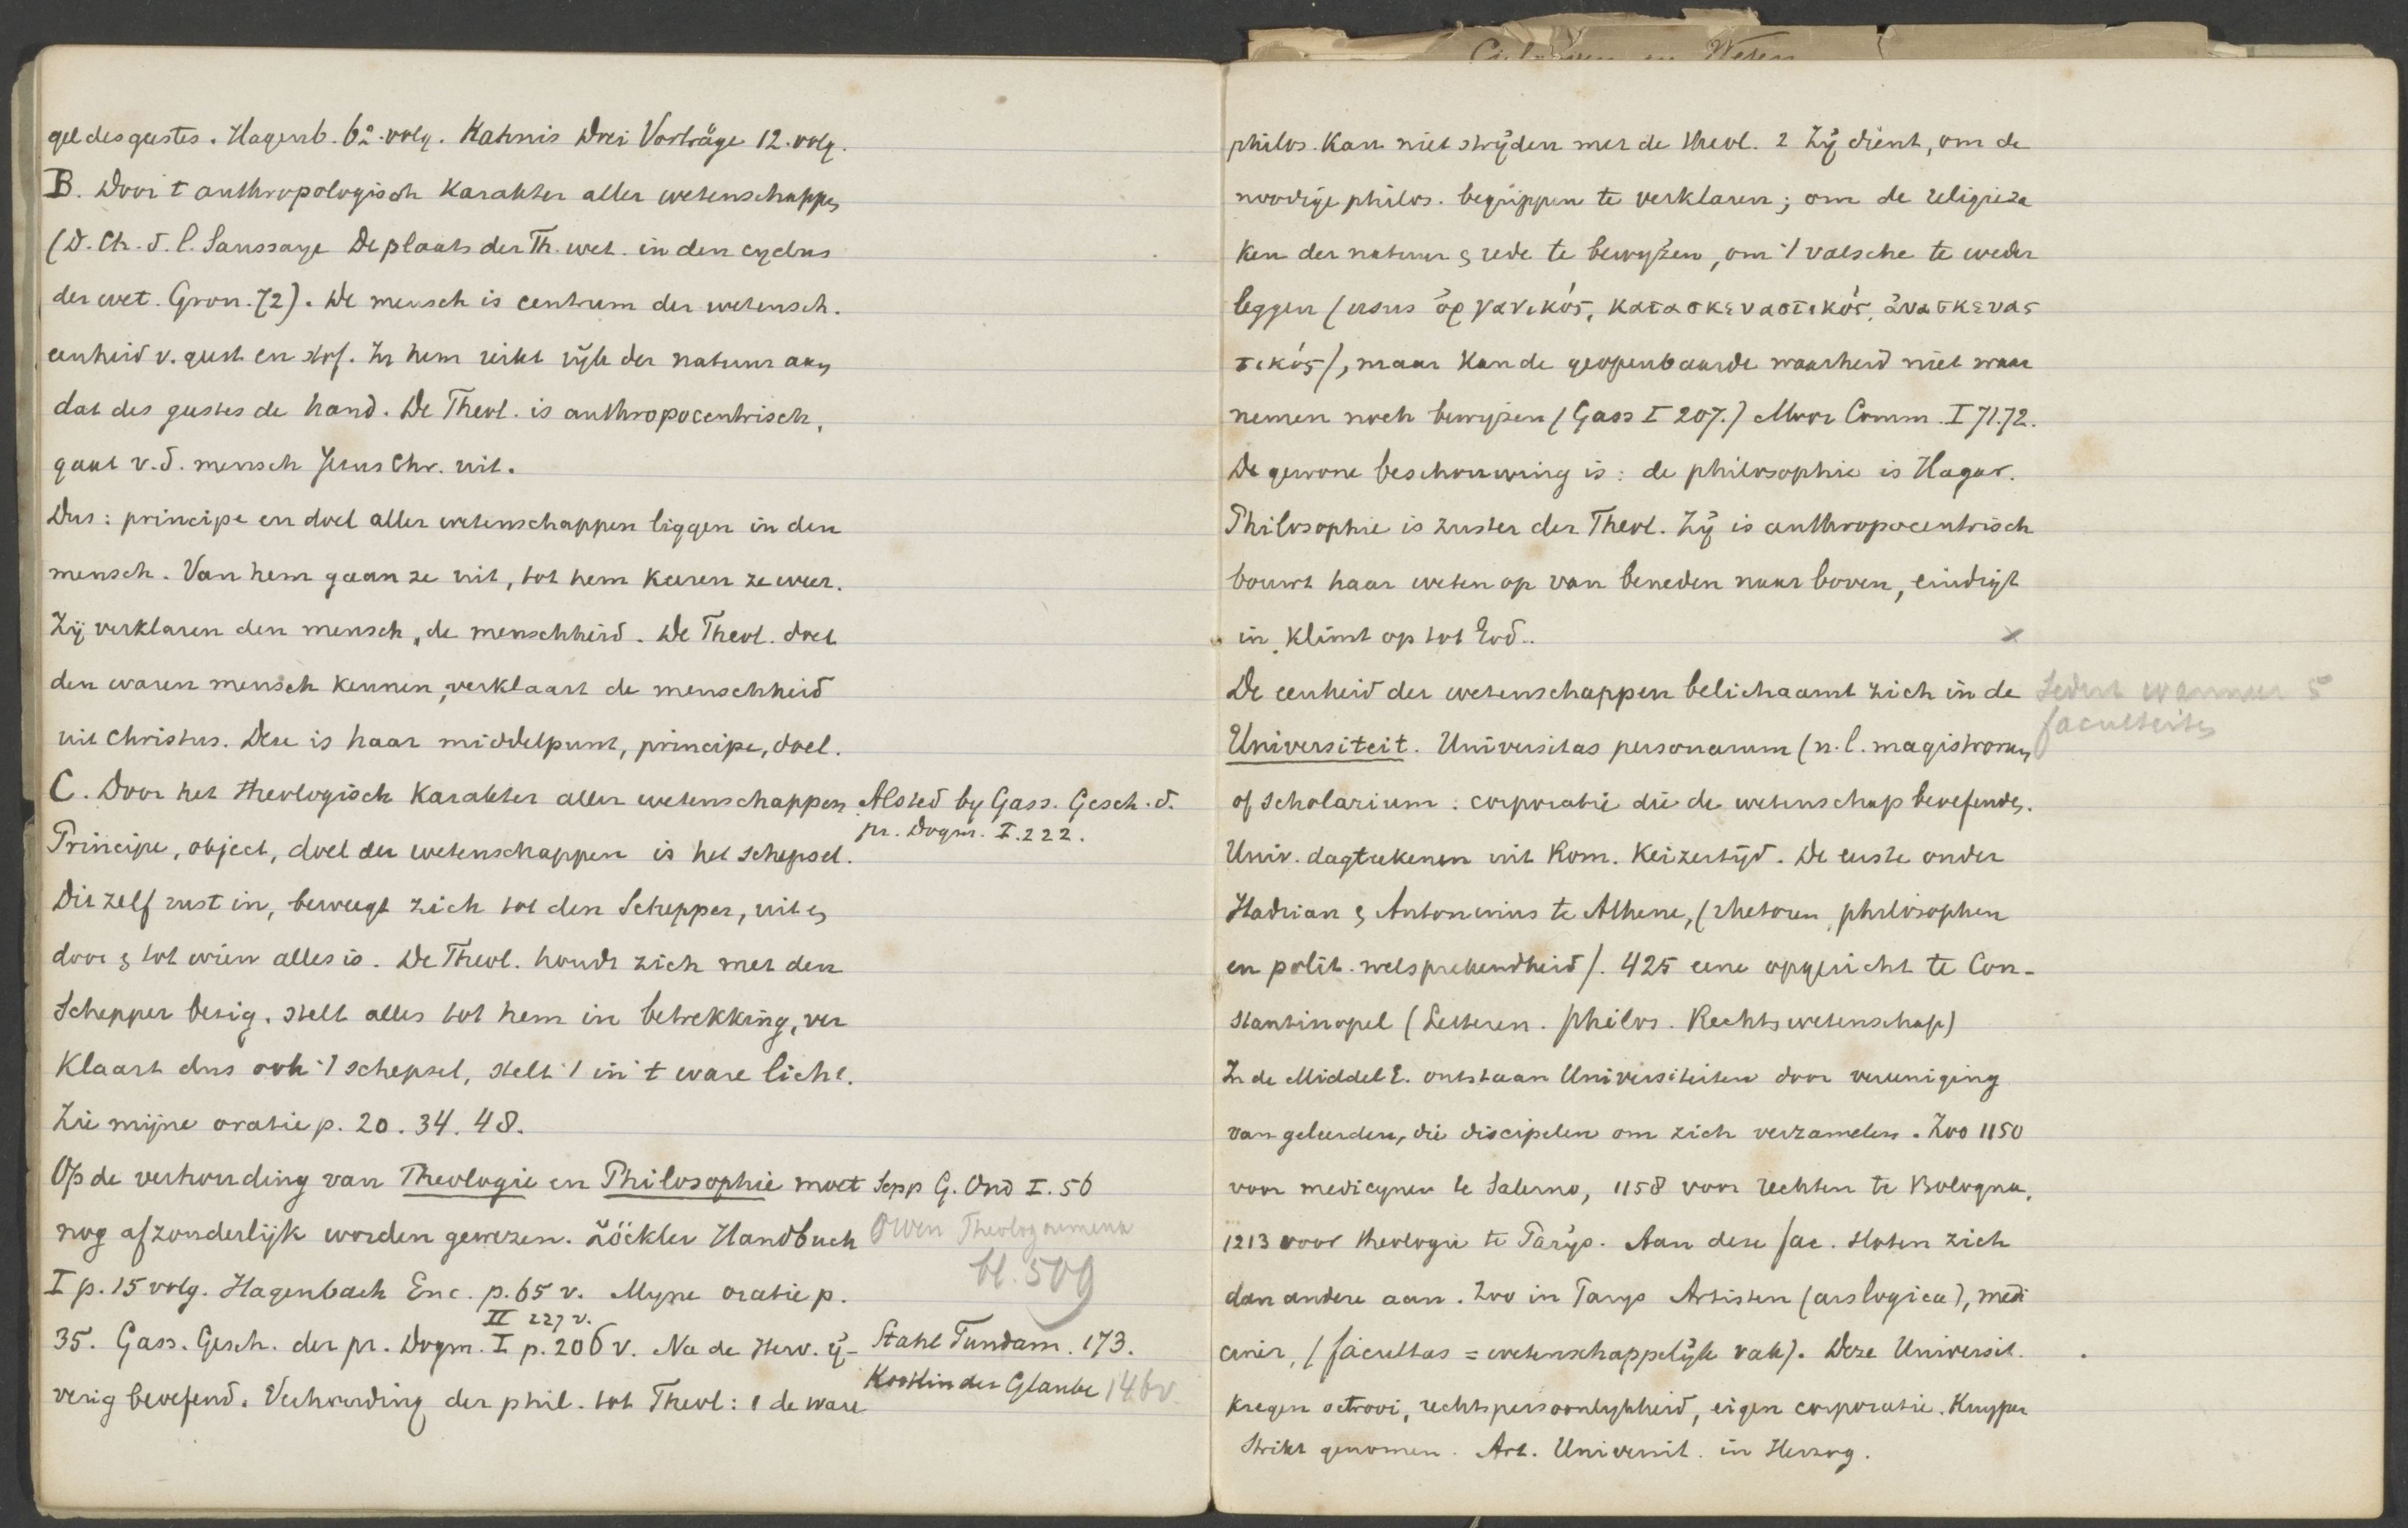 gel des geestes. Hagenb. 62. volg. Kahnis Drei Vorträge 12. volg.
B. Door t anthropologisch Karakter aller wetenschappen
(D. Ch. d. l. Saussaye De plaats der Th. wet. in den cyclus
der wet. Gron. 72). De mensch is centrum der wetensch.
eenheid v. geest en stof. In hem reikt rijk der natuur aan
dat des geestes de hand. De Theol. is anthropocentrisch,
gaat v. d. mensch Jesus Chr. uit.
Dus: principe en doel aller wetenschappen liggen in den
mensch. Van hem gaan ze uit, tot hem keeren ze weer.
Zij verklaren den mensch, de menschheid. De Theol. doet
den waren mensch kennen, verklaart de menschheid
uit Christus. Deze is haar middelpunt, principe, doel.
C. Door het theologisch Karakter aller wetenschappen.
Alsted by Gass. Gesch. d.
pr. Dogm. I. 222.
Principe, object, doel der wetenschappen is het schepsel.
Dit zelf rust in, beweegt zich tot den Schepper, uit en
door en tot wien alles is. De Theol. houdt zich met den
Schepper bezig. stelt alles tot hem in betrekking, ver
klaart dus ook 't schepsel, stelt 't in 't ware licht.
Zie mijne oratie p. 20. 34. 48.
Op de verhouding van Theologie en Philosophie moet
Sepp G. Ond I. 56
nog afzonderlijk worden gewezen. Zöckler Handbuch
Owen Theologoumena
bl. 509
I p. 15 volg. Hagenbach Enc. p. 65 v. Myne oratie p.
II 227 v.
35. Gass. Gesch. der pr. Dogm. I p. 206 v. Na de Herv. ij-
Stahl Fundam. 173.
verig beoefend. Verhouding der phil. tot Theol: 1 de ware
Kostlin der Glaube 146v.
philos. Kan niet stryden met de theol. 2 Zij dient, om de
noodige philos. begrippen te verklaren; om de religieza
ken der natuur en rede te bewyzen, om 't valsche te weder
leggen (usus ὀργανικός, κατασκευαστικός, ἀνασκευας
τικός), maar kan de geopenbaarde waarheid niet waar
nemen noch bewyzen (Gass I 207.) Moor Comm. I 71.72.
De gewone beschouwing is: de philosophie is Hagar.
Philosophie is zuster der Theol. Zij is anthropocentrisch
bouwt haar weten op van beneden naar boven, eindigt
in, klimt op tot God..
De eenheid der wetenschappen belichaamt zich in de
Sedert wanneer 5
faculteiten
Universiteit. Universitas personarum (n.l. magistrorum
of scholarium: corporatie die de wetenschap beoefenden.
Univ. dagteekenen uit Rom. Keizertijd. De eerste onder
Hadrian en Antoninus te Athene, (rhetoren, philosophen
en polit. welsprekendheid). 425 eene opgericht te Con-
stantinopel (Letteren. philos. Rechtswetenschap)
In de Middel E. ontstaan Universiteiten door vereeniging
van geleerden, die discipelen om zich verzamelen. Zoo 1150
voor medicynen te Salerno, 1158 voor rechten te Bologna,
1213 voor theologie te Parijs. Aan deze fac. sloten zich
dan andere aan. Zoo in Parys Artisten (ars logica), medi
cinen, (facultas = wetenschappelijk vak). Deze Universit.
kregen octrooi, rechtspersoonlykheid, eigen corporatie. Kuyper
Strikt genomen. Art. Universit. in Herzog.